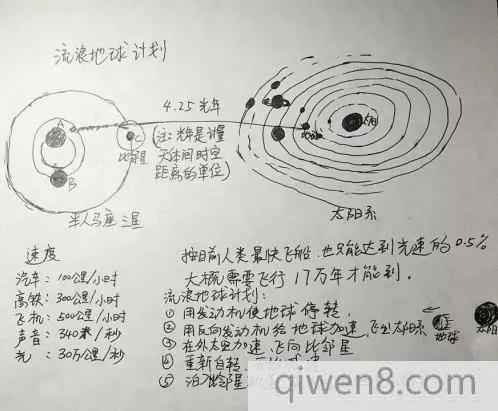 流浪地球计划
4.25光年
(注:光年是计量
天体间时空
距离的单位)
A
B
C
比邻星
地球
太阳
半人马座三星
太阳系
速度
汽车:100公里/小时
高铁:300公里/小时
飞机:500公里/小时
声音:340米/秒
光:30万公里/秒
按目前人类最快飞船,也只能达到光速的0.5%
大概需要飞行17万年才能到.
流浪地球计划:
① 用发动机使地球停转,
② 用反向发动机给地球加速,飞出太阳系
③ 在外太空加速,飞向比邻星
④ 重新自转
⑤ 泊入比邻星
地球
qiwen8.com